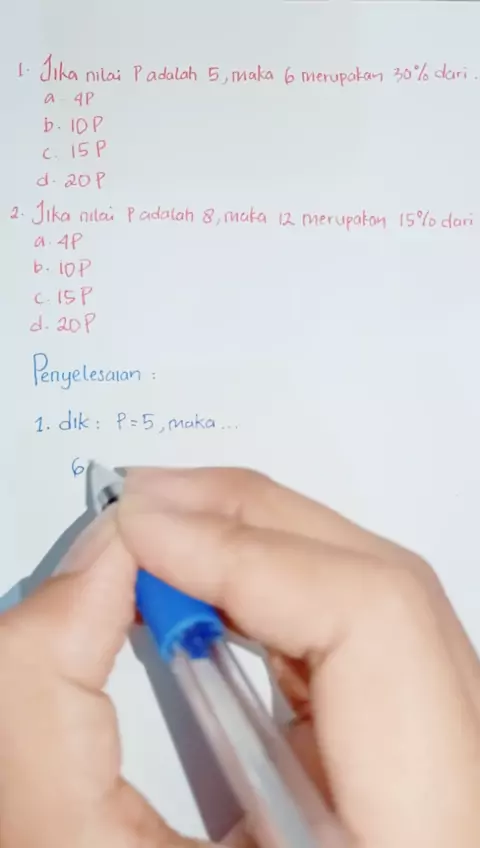 1. Jika nilai P adalah 5, maka 6 merupakan 30% dari.
a. 4P
b. 10P
c. 15P
d. 20P
2. Jika nilai P adalah 8, maka 12 merupakan 15% dari
a. 4P
b. 10P
c. 15P
d. 20P
Penyelesaian :
1. dik : P = 5, maka ...
6